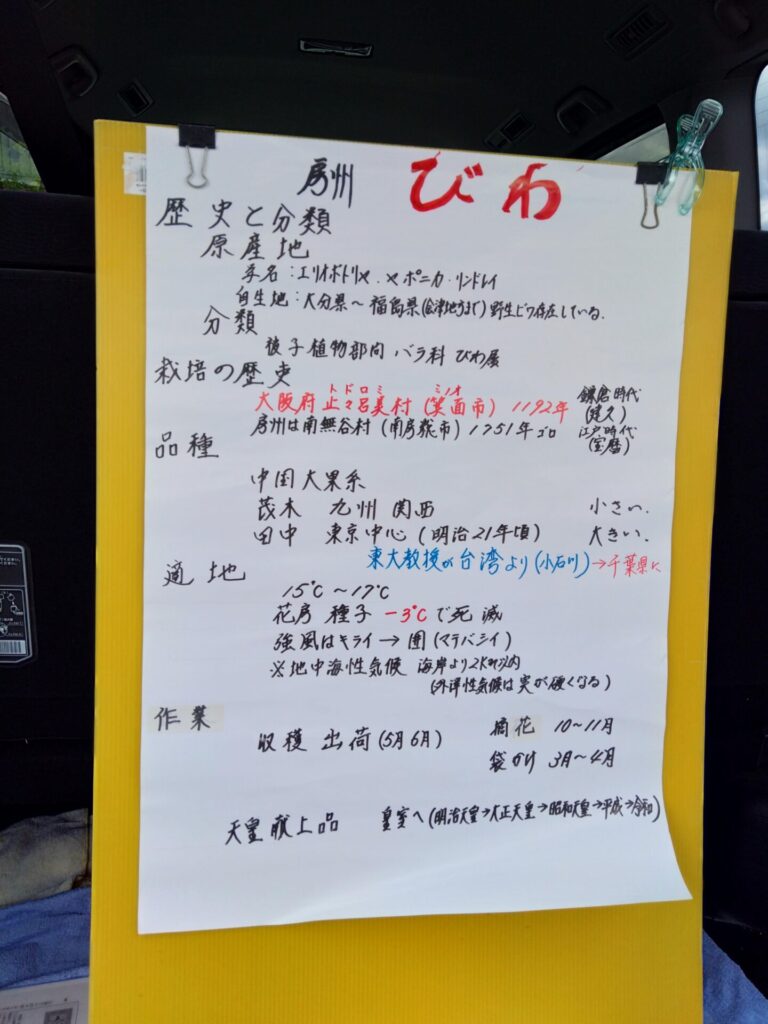 房州 びわ
歴史と分類
原産地
学名:エリオボトリヤ.ヤポニカ.リンドレイ
自生地:大分県〜福島県(会津地方まで)野生ビワ存在している.
分類
被子植物部向 バラ科 びわ属
栽培の歴史
トドロミ ミノオ
大阪府 止々呂美村 (箕面市) 1192年 鎌倉時代(建久)
房州は南無谷村 (南房総市) 1751年ゴロ 江戸時代(宝暦)
品種
中国大果系
茂木 九州 関西 小さい.
田中 東京中心 (明治21年頃) 大きい.
東大教授が台湾より(小石川)→千葉県に
適地
15℃〜17℃
花房 種子 -3℃で死滅
強風はキライ→囲(マテバシイ)
※地中海性気候 海岸より2Km以内
(外洋性気候は実が硬くなる)
作業
収穫 出荷(5月6月) 摘花 10〜11月
袋かけ 3月〜4月
天皇献上品 皇室へ(明治天皇→大正天皇→昭和天皇→平成→令和)